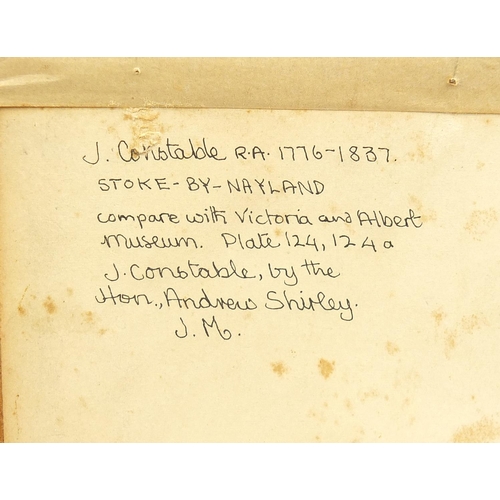 J. Constable R.A. 1776-1837.
STOKE-BY-NAYLAND
compare with Victoria and Albert
Museum. Plate 124, 124a
J. Constable, by the
Hon., Andrew Shirley.
J.M.